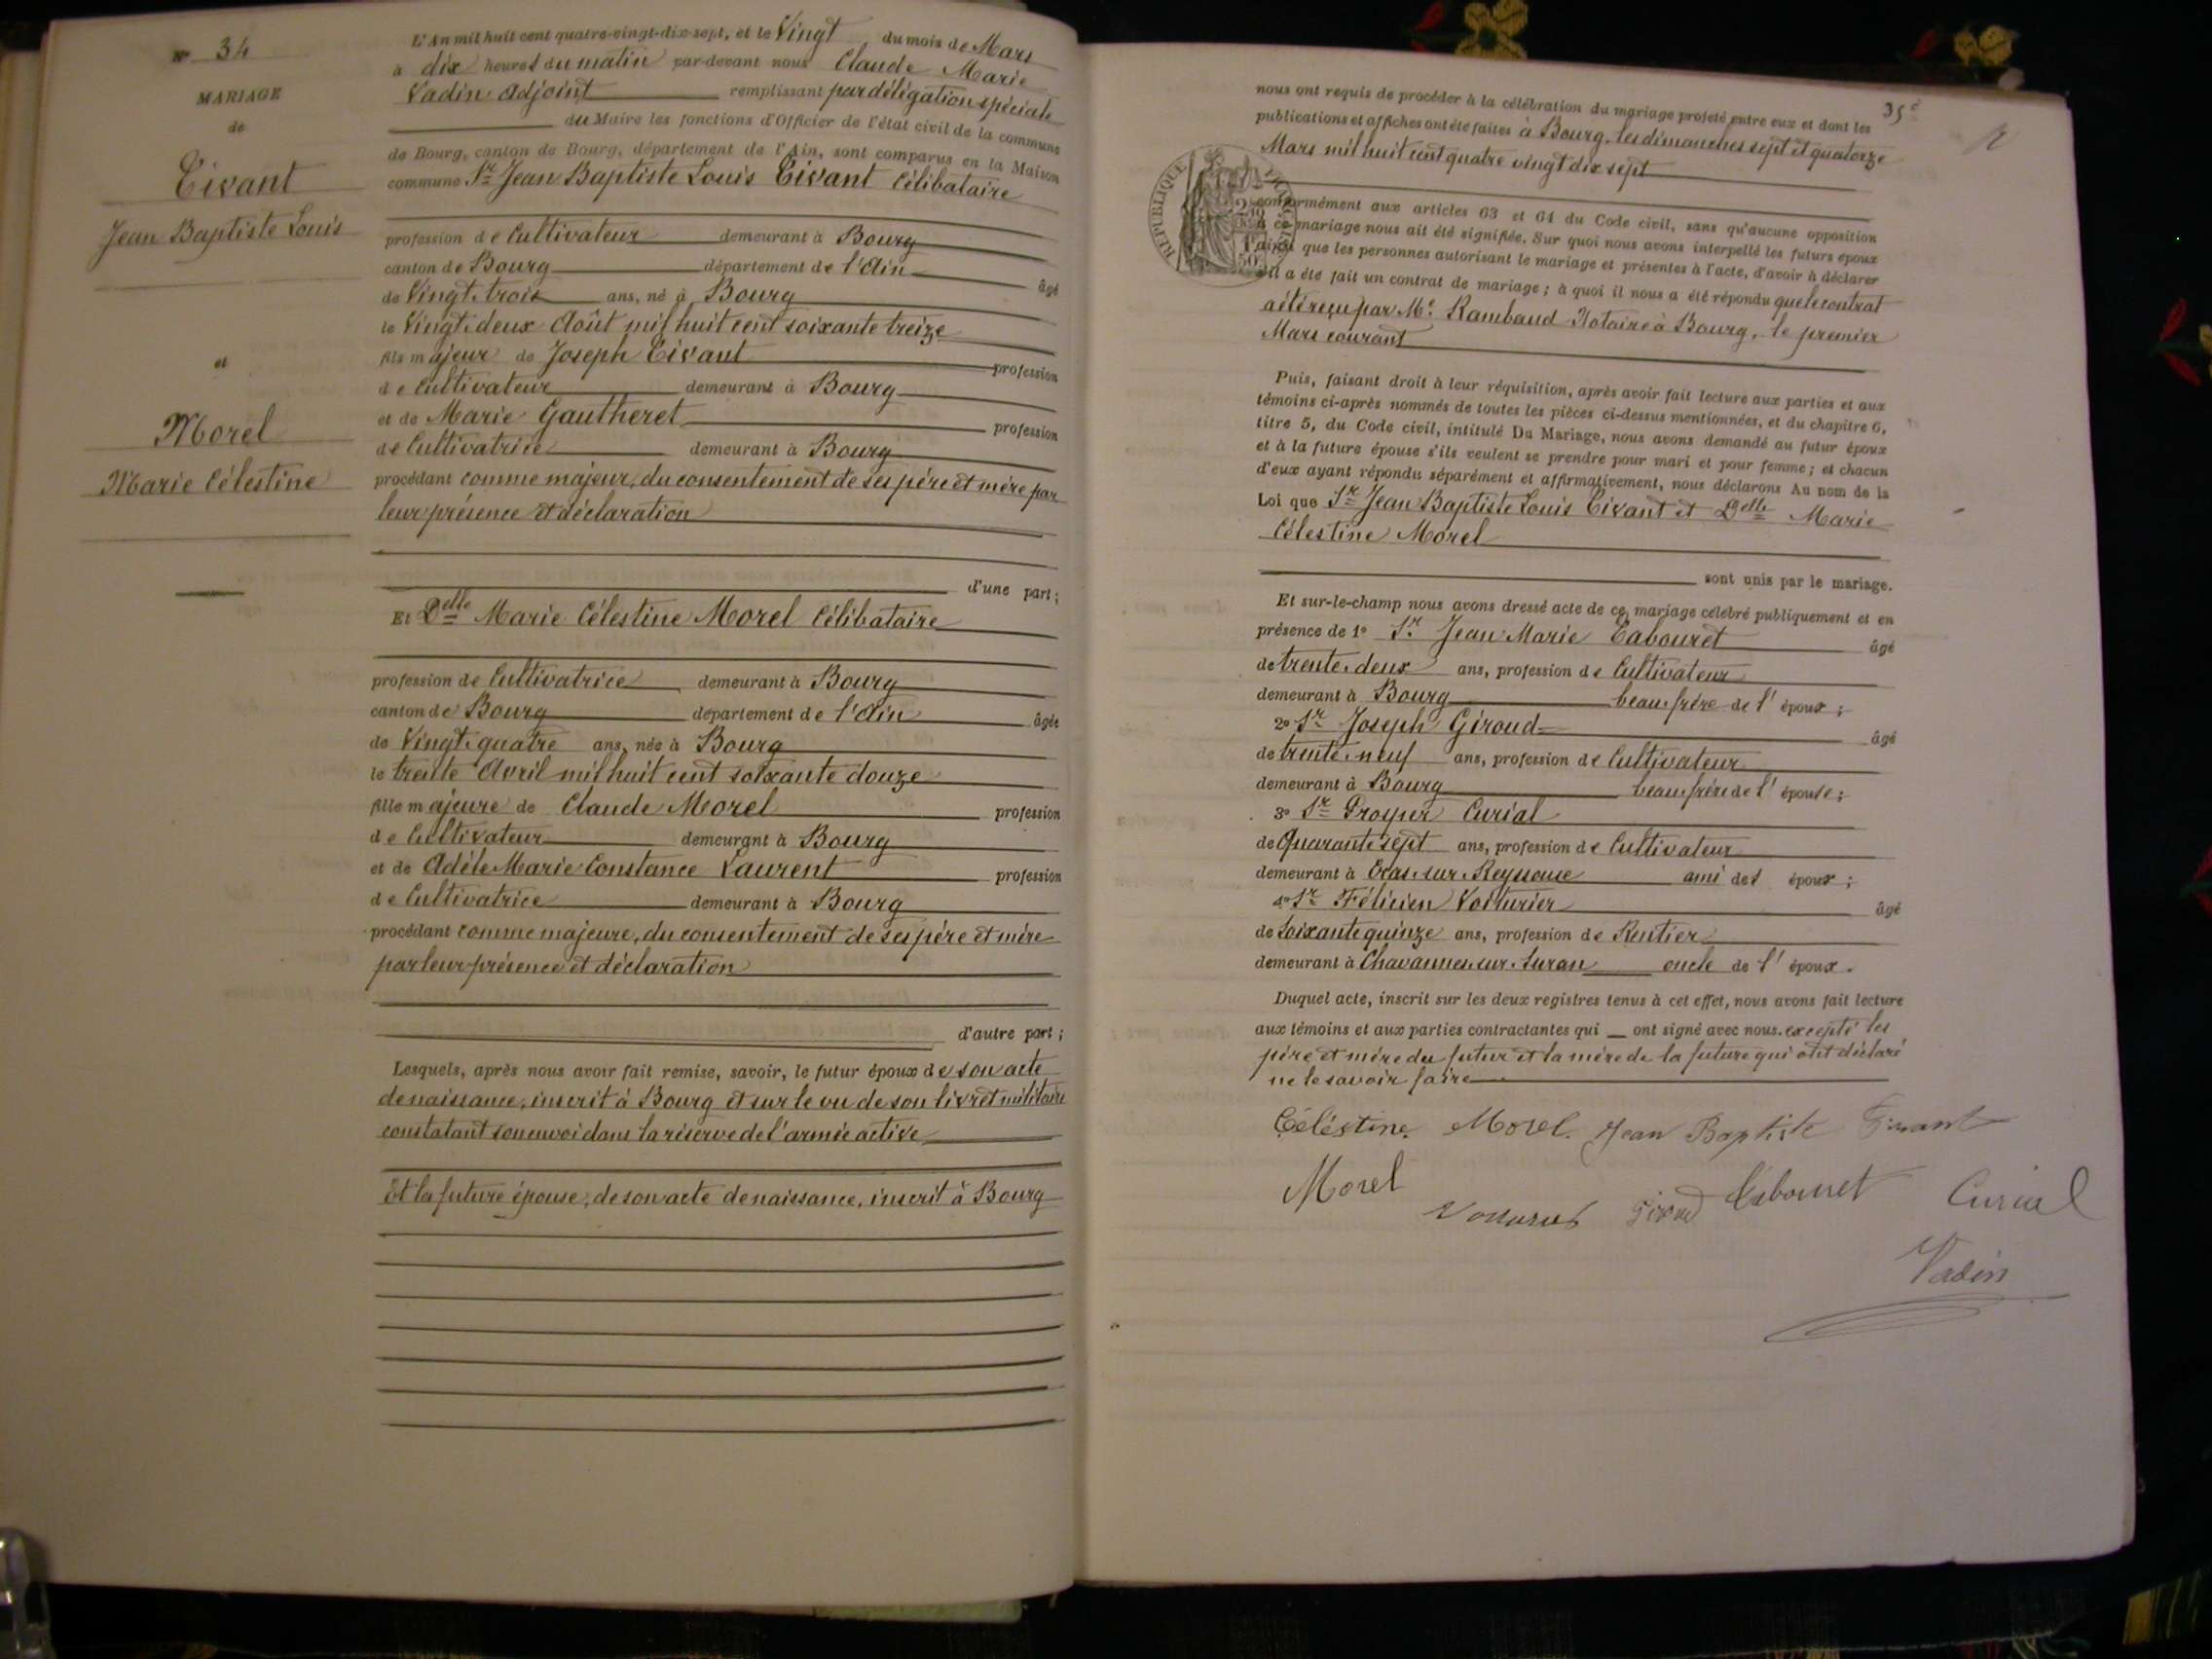 N° 34
MARIAGE
de
Tivant
Jean Baptiste Louis
et
Morel
Marie Célestine
L'An mil huit cent quatre-vingt-dix-sept, et le Vingt du mois de Mars
à dix heures du matin par-devant nous Claude Marie
Vadin Adjoint remplissant par délégation spéciale
du Maire les fonctions d'Officier de l'état civil de la commune
de Bourg, canton de Bourg, département de l'Ain, sont comparus en la Maison
commune Sr Jean Baptiste Louis Tivant Célibataire
profession de Cultivateur demeurant à Bourg
canton de Bourg département de l'Ain âgé
de Vingt-trois ans, né à Bourg
le Vingt-deux Août mil huit cent soixante treize
fils majeur de Joseph Tivant profession
de Cultivateur demeurant à Bourg
et de Marie Gautheret profession
de Cultivatrice demeurant à Bourg
procédant comme majeur, du consentement de ses père et mère par
leur présence et déclaration
d'une part;
Et Delle Marie Célestine Morel Célibataire
profession de Cultivatrice demeurant à Bourg
canton de Bourg département de l'Ain âgée
de Vingt-quatre ans, née à Bourg
le trente Avril mil huit cent soixante douze
fille majeure de Claude Morel profession
de Cultivateur demeurant à Bourg
et de Adèle Marie Constance Laurent profession
de Cultivatrice demeurant à Bourg
procédant comme majeure, du consentement de ses père et mère
par leur présence et déclaration
d'autre part;
Lesquels, après nous avoir fait remise, savoir, le futur époux de son acte
de naissance, inscrit à Bourg et sur le vu de son livret militaire
constatant son envoi dans la réserve de l'armée active
Et la future épouse, de son acte de naissance, inscrit à Bourg
35e
nous ont requis de procéder à la célébration du mariage projeté entre eux et dont les
publications et affiches ont été faites à Bourg, les dimanches sept et quatorze
Mars mil huit cent quatre vingt dix sept
REPUBLIQUE
conformément aux articles 63 et 64 du Code civil, sans qu'aucune opposition
à ce mariage nous ait été signifiée. Sur quoi nous avons interpellé les futurs époux
ainsi que les personnes autorisant le mariage et présentes à l'acte, d'avoir à déclarer
s'il a été fait un contrat de mariage; à quoi il nous a été répondu que le contrat
a été reçu par Me Rambaud Notaire à Bourg, le premier
Mars courant
Puis, faisant droit à leur réquisition, après avoir fait lecture aux parties et aux
témoins ci-après nommés de toutes les pièces ci-dessus mentionnées, et du chapitre 6,
titre 5, du Code civil, intitulé Du Mariage, nous avons demandé au futur époux
et à la future épouse s'ils veulent se prendre pour mari et pour femme; et chacun
d'eux ayant répondu séparément et affirmativement, nous déclarons Au nom de la
Loi que Sr Jean Baptiste Louis Tivant et Delle Marie
Célestine Morel
sont unis par le mariage.
Et sur-le-champ nous avons dressé acte de ce mariage célébré publiquement et en
présence de 1° Sr Jean Marie Tabouret âgé
de trente-deux ans, profession de Cultivateur
demeurant à Bourg beau-frère de l'époux;
2° Sr Joseph Giroud âgé
de trente-neuf ans, profession de Cultivateur
demeurant à Bourg beau-frère de l'épouse;
3° Sr Prosper Curial
de Quarante sept ans, profession de Cultivateur
demeurant à Cras-sur-Reyssouze ami des époux;
4° Sr Félicien Voiturier âgé
de Soixante quinze ans, profession de Rentier
demeurant à Chavannes-sur-Suran oncle de l'époux.
Duquel acte, inscrit sur les deux registres tenus à cet effet, nous avons fait lecture
aux témoins et aux parties contractantes qui ont signé avec nous. excepté les
père et mère du futur et la mère de la future qui ont déclaré
ne le savoir faire
Céléstine Morel. Jean Baptiste Tivant
Morel Giroud Tabouret Curial
Vadin